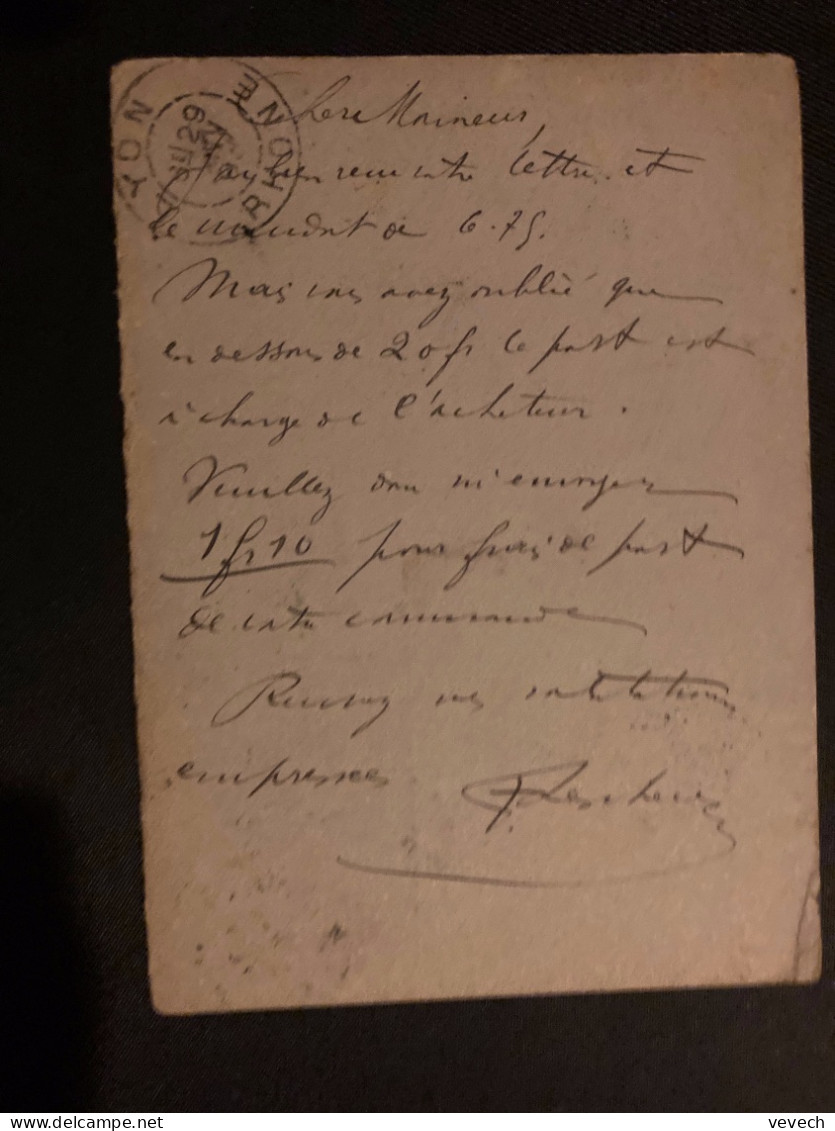 LYON
RHONE
29
Cher Monsieur,
J'ai bien reçu votre lettre et
le mandat de 6.75.
Mais vous avez oublié que
en dessous de 20 fr le port est
à charge de l'acheteur.
Veuillez donc m'envoyer
1 fr 10 pour frais de port
de votre commande
Recevez mes salutations
empressées
vevech